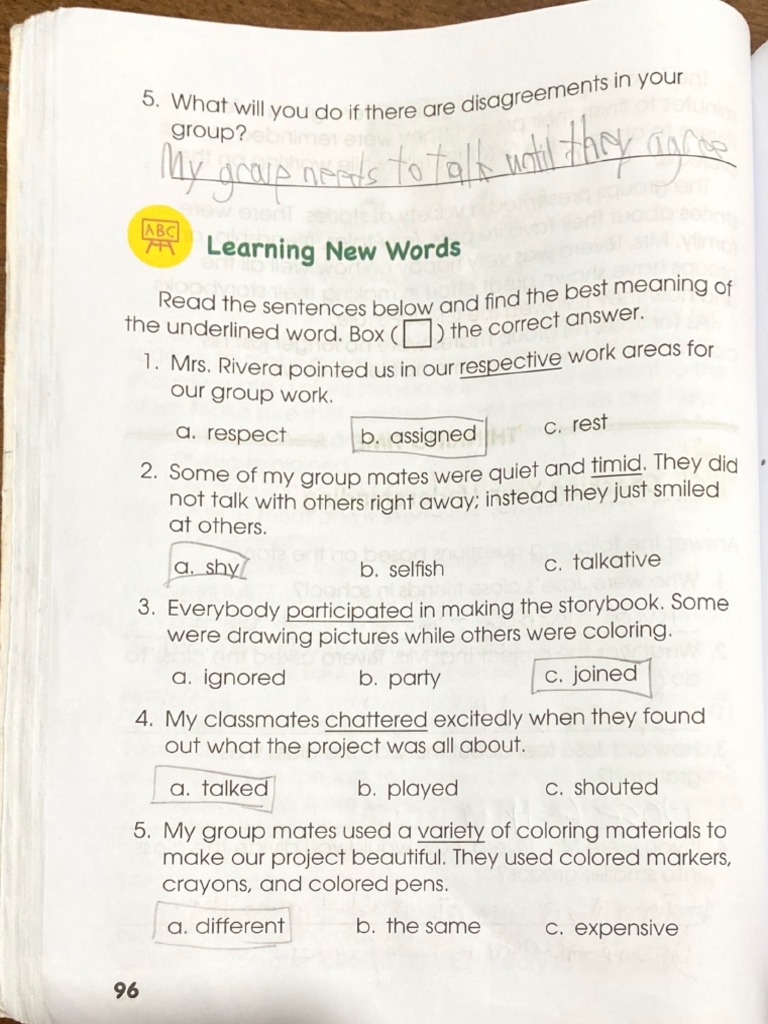 5. What will you do if there are disagreements in your
group?
My group needs to talk until they agree
ABC
Learning New Words
Read the sentences below and find the best meaning of
the underlined word. Box (□) the correct answer.
1. Mrs. Rivera pointed us in our respective work areas for
our group work.
a. respect b. assigned c. rest
2. Some of my group mates were quiet and timid. They did
not talk with others right away; instead they just smiled
at others.
a. shy b. selfish c. talkative
3. Everybody participated in making the storybook. Some
were drawing pictures while others were coloring.
a. ignored b. party c. joined
4. My classmates chattered excitedly when they found
out what the project was all about.
a. talked b. played c. shouted
5. My group mates used a variety of coloring materials to
make our project beautiful. They used colored markers,
crayons, and colored pens.
a. different b. the same c. expensive
96